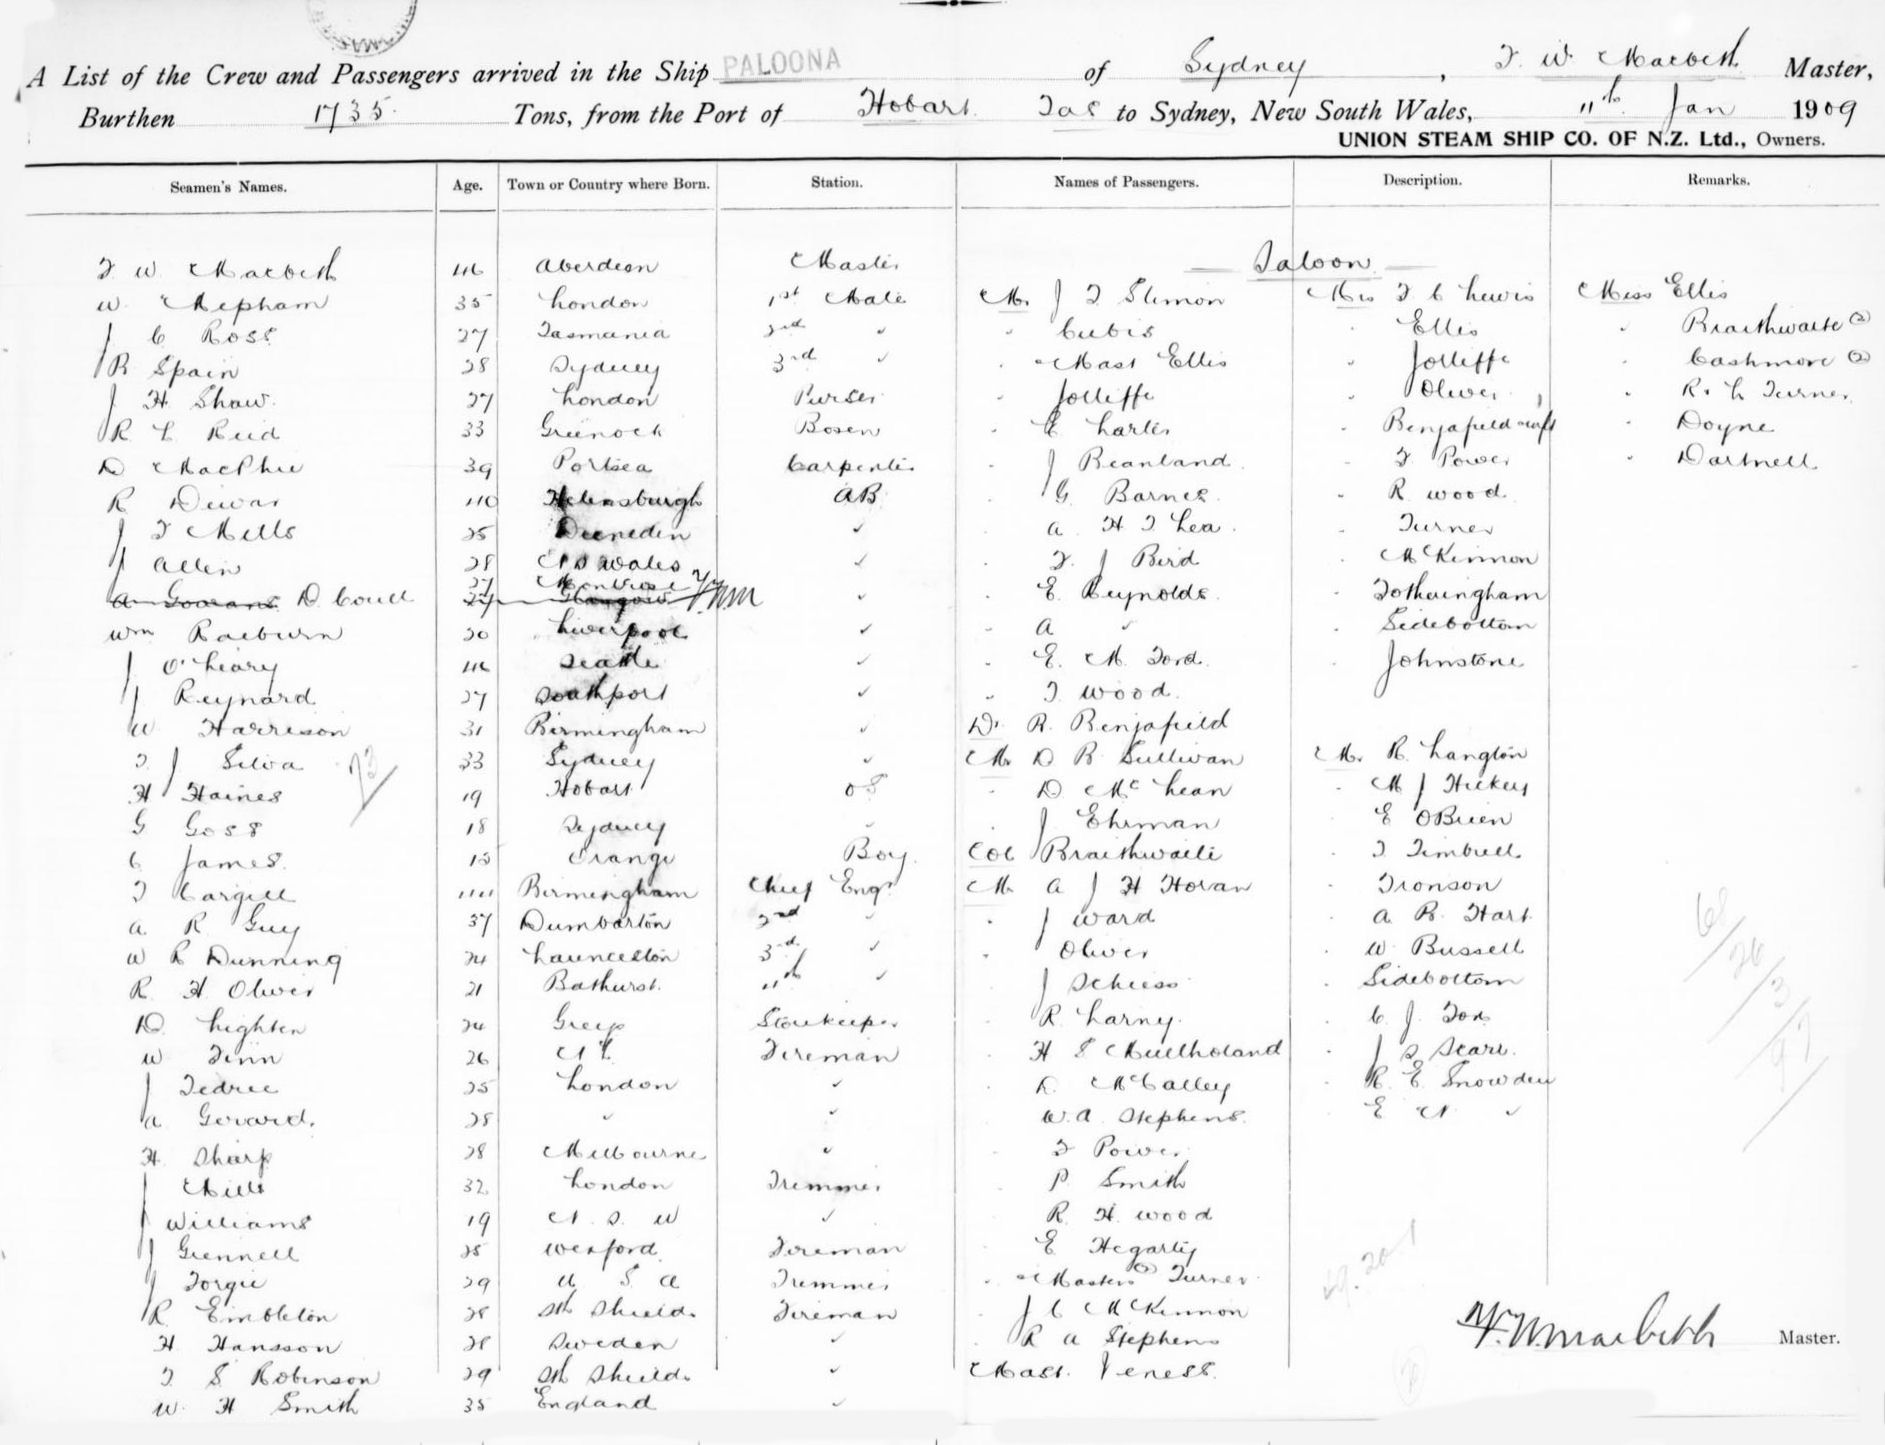 A List of the Crew and Passengers arrived in the Ship PALOONA of Sydney, F. W. Macbeth Master,
Burthen 1735 Tons, from the Port of Hobart Tas to Sydney, New South Wales, 11th Jan 1909
UNION STEAM SHIP CO. OF N.Z. Ltd., Owners.
Seamen's Names. Age. Town or Country where Born. Station. Names of Passengers. Description. Remarks.
Saloon
F. W. Macbeth 46 Aberdeen Master
W. Mepham 35 London 1st Mate Mr J F Slimon Mrs F C Lewis Miss Ellis
J C Ross 27 Tasmania 2nd " " Cubis " Ellis " Braithwaite (2)
R Spain 28 Sydney 3rd " " Mast Ellis " Jolliffe " Cashmore (2)
J H Shaw 27 London Purser " Jolliffe " Oliver " R. L Turner
R L Reid 33 Greenock Bosen " E Larter " Benjafield " Doyne
D MacPhie 39 Portsea Carpenter " J Beanland " F Power " Dartnell
R Dewar 40 Helensburgh AB " G Barnes " R Wood
J F Mells 25 Dunedin " " A H T Lea " Turner
J Allen 28 N S Wales " " F. J Bird " McKinnon
A Gowans D Coull 27 27 Montrose Glasgow " " E. Reynolds " Fotheringham
Wm Raeburn 20 Liverpool " " A " " Sidebottom
J O'Leary 46 Seattle " " E. M. Ford " Johnstone
J Reynard 27 Southport " " F Wood
W Harrison 31 Birmingham " Dr R. Benjafield
F. J Silva 33 Sydney " Mr D R Sullivan Mr R. Langton
H Haines 19 Hobart OS " D McLean " M J Hickey
G Goss 18 Sydney " " J Ehrman " E OBrien
C James 15 Orange Boy Col Braithwaite " T Timbrell
T Cargill 44 Birmingham Chief Engr Mr A J H Horan " Tronson
A R Guy 37 Dumbarton 2nd " " J Ward " A R Hart
W R Dunning 24 Launceston 3rd " " Oliver " W Bussell
R H Oliver 21 Bathurst 4th " " J Schiess " Sidebottom
D. Lighten 24 Storekeeper " R Larny " C. J. Fox
W Finn 26 N Z. Fireman " H S Mulholland " J S Scarr
J Fedree 25 London " " D. McCalley " R. E. Snowden
A Gerard 28 " " W. A. Stephens " E N "
H Sharp 28 Melbourne " F Power
J Mills 32 London Trimmer P Smith
J Williams 19 N. S. W " R. H. Wood
J Grennell 25 Wexford Fireman E Hegarty
J Forgie 29 U S A Trimmer " Masters (2) Turner
R Embleton 28 Sth Shields Fireman " J C McKinnon
H Hansson 28 Sweden " " R A Stephens
T. S Robinson 29 Sth Shields " Mast. Veness
W. H Smith 35 England "
F. W. Macbeth Master.